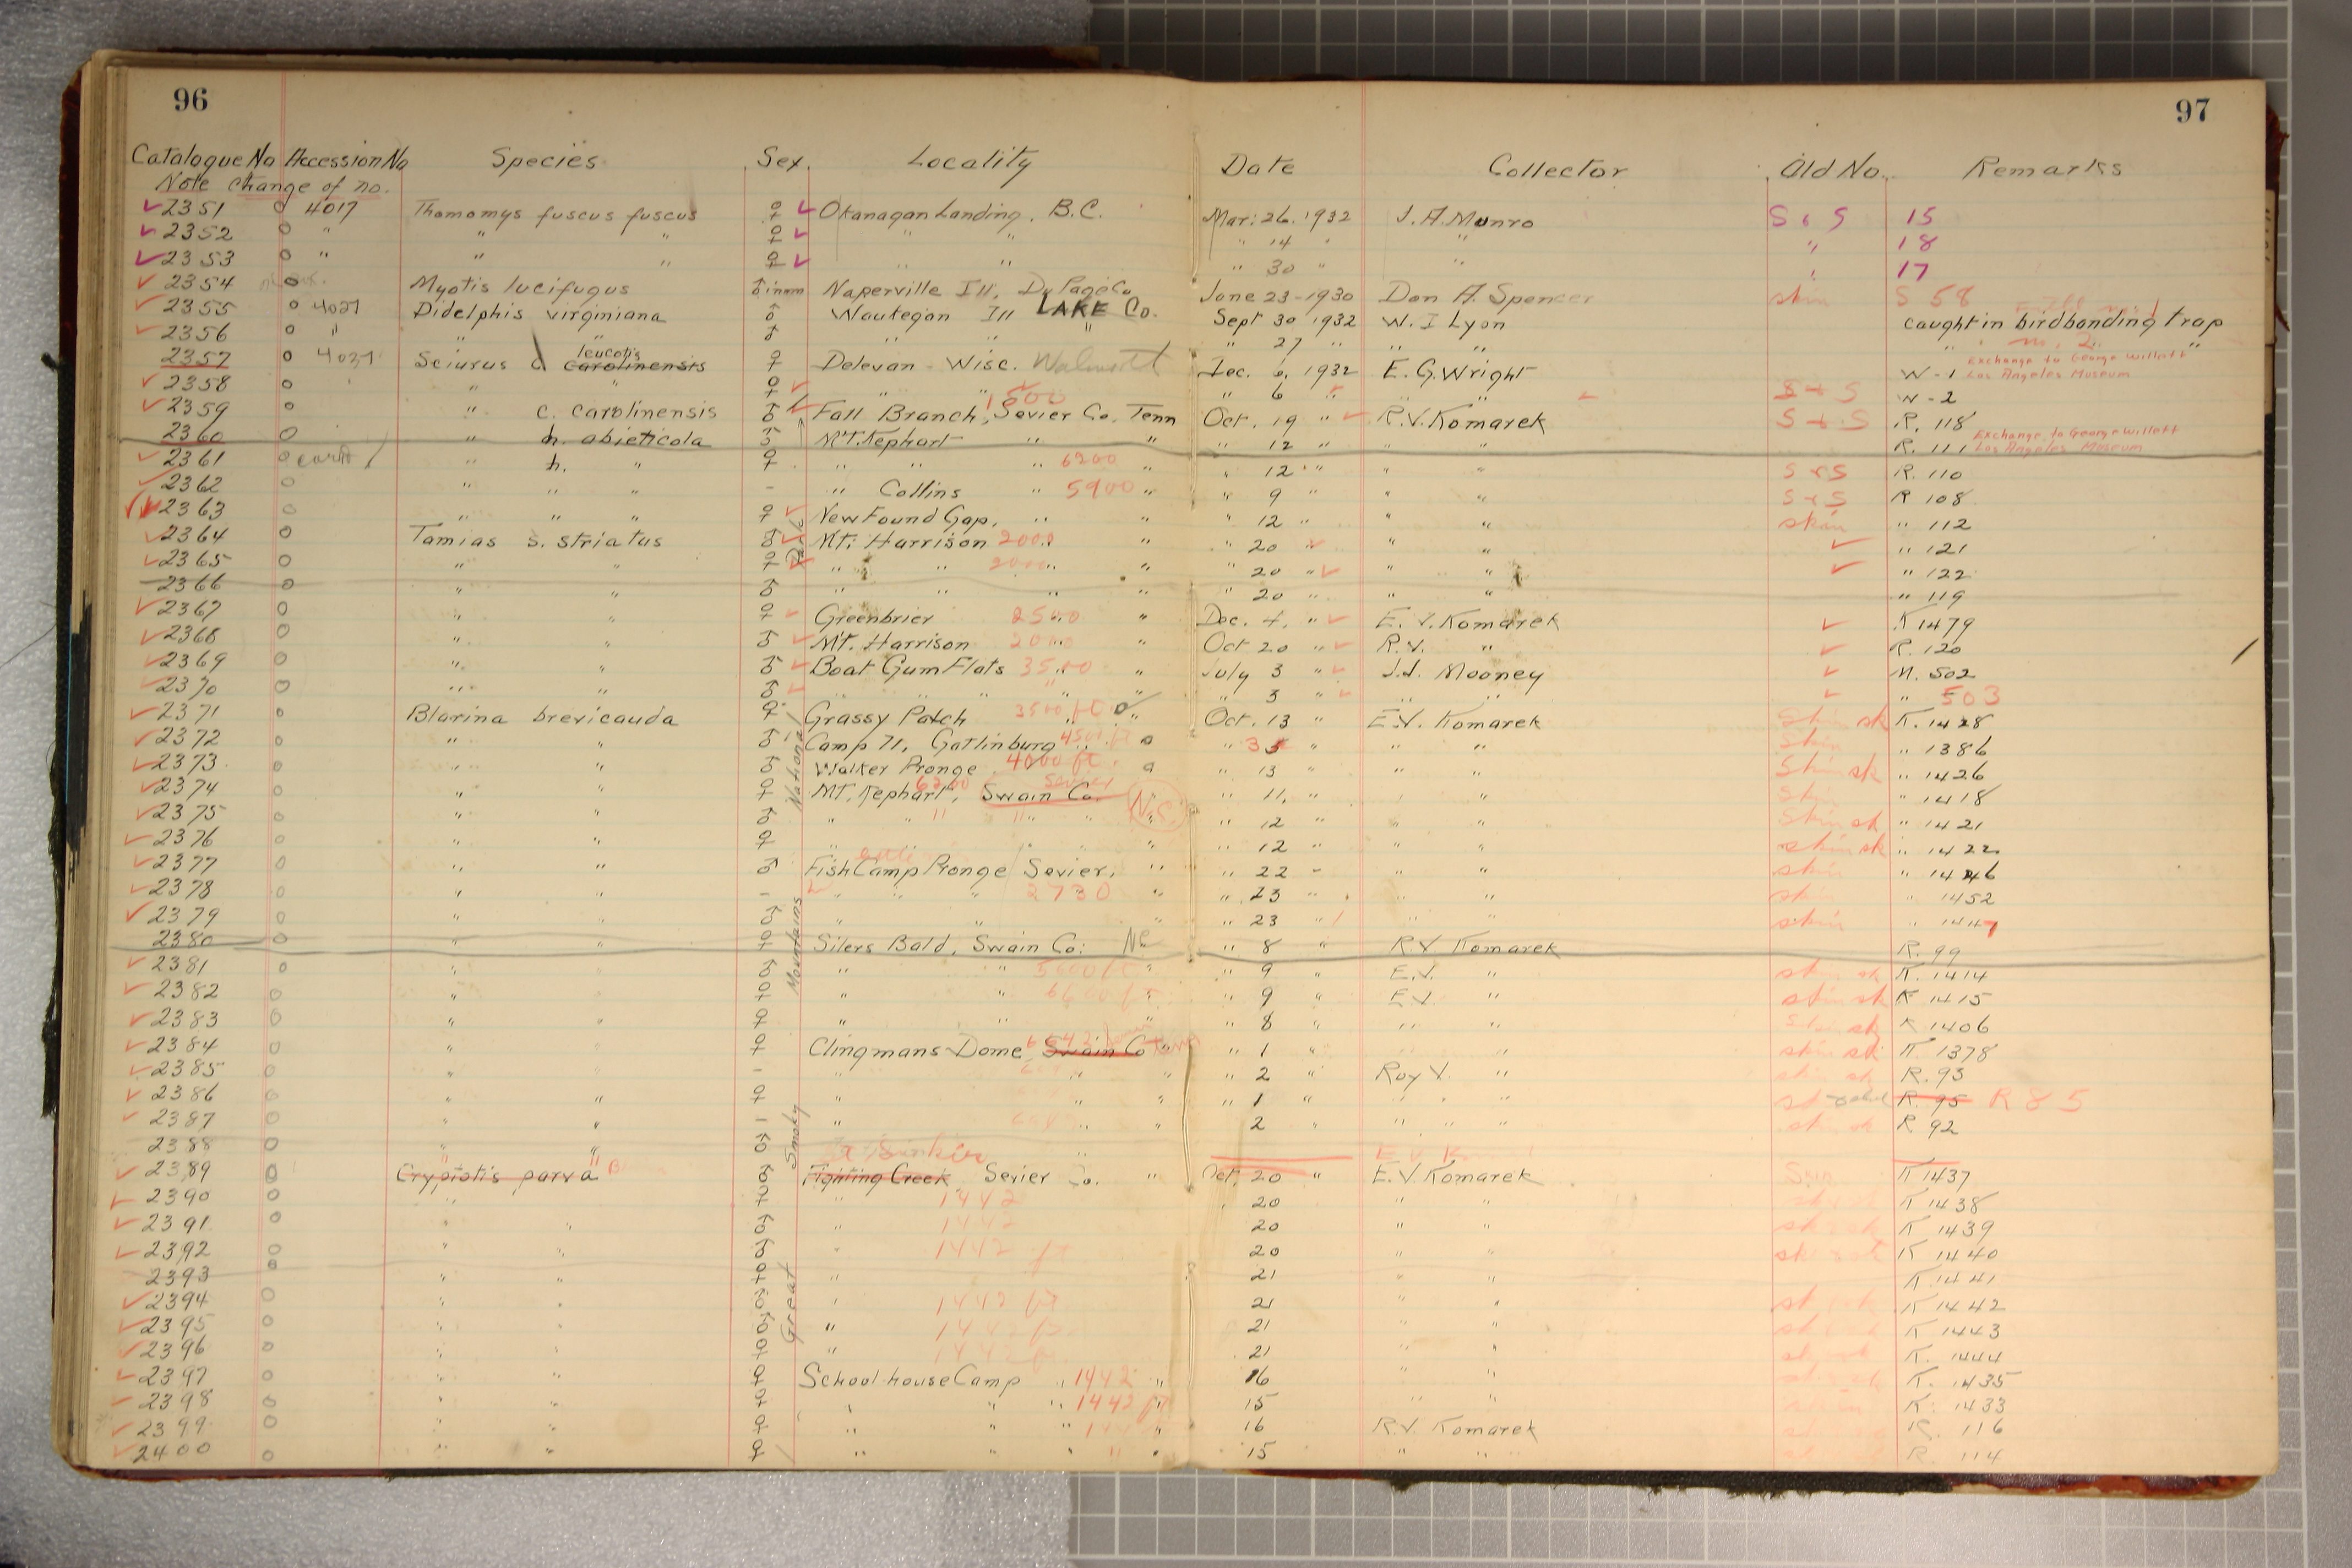 96
97
Catalogue No Accession No Species Sex Locality Date Collector Old No. Remarks
Note change of no.
2351 O 4017 Thomomys fuscus fuscus ♀ Okanagan Landing, B.C. Mar. 26. 1932 J.A. Munro S & S 15
2352 O " " " ♀ " " " 14 " " " 18
2353 O " " " ♀ " " " 30 " " " 17
2354 O Myotis lucifugus ♂ imm Naperville Ill. DuPage Co. June 23-1930 Don A. Spencer skin S 58
2355 O 4027 Didelphis virginiana ♂ Waukegan Ill LAKE Co. Sept 30 1932 W. I Lyon caught in birdbanding trap
2356 O " " " ♂ " " " " 27 " " " " "
2357 O 4027 Sciurus c leucotis carolinensis ♀ Delevan Wisc. Dec. 6, 1932 E.G. Wright W-1 Exchange to George Willett Los Angeles Museum
2358 O " " ♀ " " " 6 " " W-2
2359 O " c. carolinensis ♂ Fall Branch, 1500 Sevier Co. Tenn Oct. 19 " R.V. Komarek S + S R. 118
2360 O " h. abieticola ♂ Mt. Kephart " " " 12 " " " R. 111 Exchange to George Willett Los Angeles Museum
2361 O " h. " ♀ " " " 6200 " " 12 " " " S + S R. 110
2362 O " " " - " Collins " 5900 " " 9 " " " S + S R 108
2363 O " " " ♀ New Found Gap, " " " 12 " " " skin " 112
2364 O Tamias s. striatus ♂ Mt. Harrison 2000 " " " 20 " " " " 121
2365 O " " ♀ " " 2000 " " " 20 " " " " 122
2366 O " " ♂ " " " " " 20 " " " " 119
2367 O " " ♀ Greenbrier 2500 " Dec. 4, " E.V. Komarek K 1479
2368 O " " ♂ Mt. Harrison 2000 Oct 20 " R.V. " R. 120
2369 O " " ♂ Boat Gum Flats 3500 " July 3 " J.J. Mooney M. 502
2370 O " " ♂ " " " " " " 3 " " " " 503
2371 O Blarina brevicauda ♀ Grassy Patch 3500 ft " Oct. 13 " E.V. Komarek Skin sk K. 1428
2372 O " " ♂ Camp 71, Gatlinburg 4500 ft " " 3 " " " Skin " 1386
2373 O " " ♂ Walker Pronge 4000 ft. " 13 " " " Skin sk " 1426
2374 O " " ♀ Mt. Kephart, 6200 Swain Co. Sevier " 11, " " " Skin " 1418
2375 O " " ♂ " " " " " N.C. " 12 " " " Skin sk " 1421
2376 O " " ♀ " " " " 12 " " " skin sk " 1422
2377 O " " ♂ Fish Camp Pronge Sevier, " " 22 " " " skin " 1446
2378 O " " - " " " 2730 " " 23 " " " skin " 1452
2379 O " " ♂ " " " " 23 " " " skin " 1447
2380 O " " ♀ Silers Bald, Swain Co: NC " 8 " R.V Komarek R. 99
2381 O " " ♂ " " 5600 ft " " 9 " E.V. " skin sk K. 1414
2382 O " " ♀ " " 6600 ft " " 9 " E.V. " skin sk K 1415
2383 O " " ♀ " " " " 8 " " " Skin sk K 1406
2384 O " " ♀ Clingmans Dome, 6642 Swain Co " " 1 " " " skin sk K. 1378
2385 O " " - " " " " 2 " Roy V. " skin sk R. 93
2386 O " " ♀ " " " " 1 " " " " R. 95 R 85
2387 O " " - " " " 2 " " " R 92
2388 O " " ♂ "
2389 O Cryptotis parva ♂ Fighting Creek, Sevier Co. " Oct. 20 " E.V. Komarek K 1437
2390 O " ♀ " 1442 " 20 " " K 1438
2391 O " " ♂ " 1442 20 " " K 1439
2392 O " " ♂ " 1442 ft 20 " " K 1440
2393 O " " ♀ " 21 " " K 1441
2394 O " " ♂ " 1442 ft 21 " " K 1442
2395 O " " ♂ " 1442 ft 21 " " K 1443
2396 O " " ♀ " 1442 ft 21 " " K. 1444
2397 O " " ♀ Schoolhouse Camp " 1442 " 16 " " K. 1435
2398 O " " ♀ " " " 1442 ft 15 " " K. 1433
2399 O " " ♀ " " " 1442 " 16 R.V. Komarek R. 116
2400 O " " ♀ " " " " " 15 " " R. 114
Great Smoky Mountains National Park